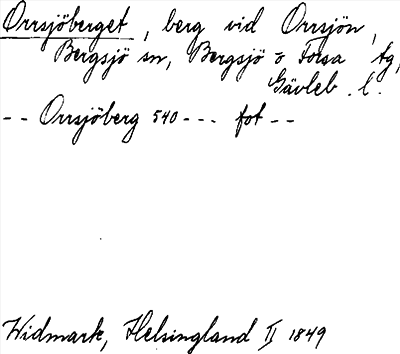 Orrsjöberget, berg vid Orrsjön,
Bergsjö sn, Bergsjö o Forsa tg,
Gävleb. l.
-- Orrsjöberg 540 --- fot --
Widmark, Helsingland II 1849